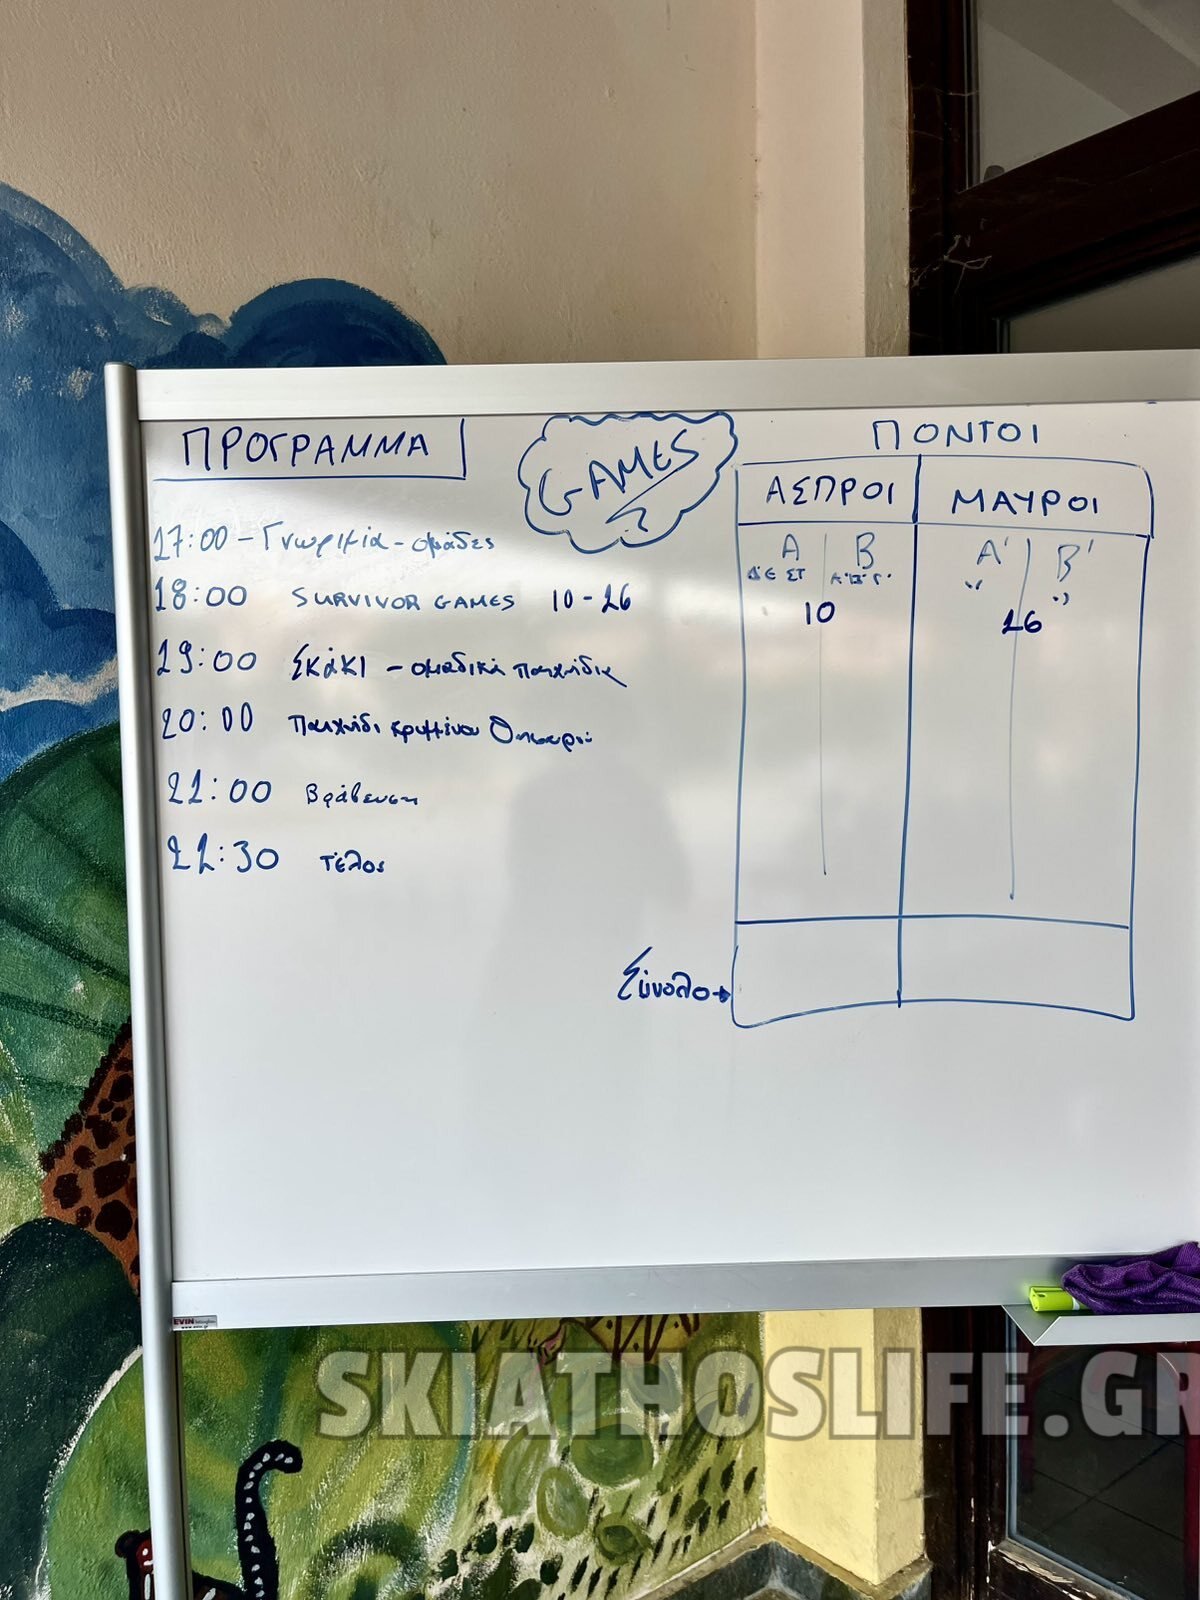 ΠΡΟΓΡΑΜΜΑ
GAMES
17:00 - Γνωριμία - ομάδες
18:00 SURVIVOR GAMES 10-26
19:00 Σκάκι - ομαδικά παιχνίδια
20:00 Παιχνίδι κρυμμένου Θησαυρού
21:00 Βράβευση
21:30 τέλος
ΠΟΝΤΟΙ
ΑΣΠΡΟΙ ΜΑΥΡΟΙ
Α Β Α' Β'
Δ'Ε ΣΤ Α'Β'Γ' " "
10 26
Σύνολο→
EVIN
www.evin.gr
SKIATHOSLIFE.GR